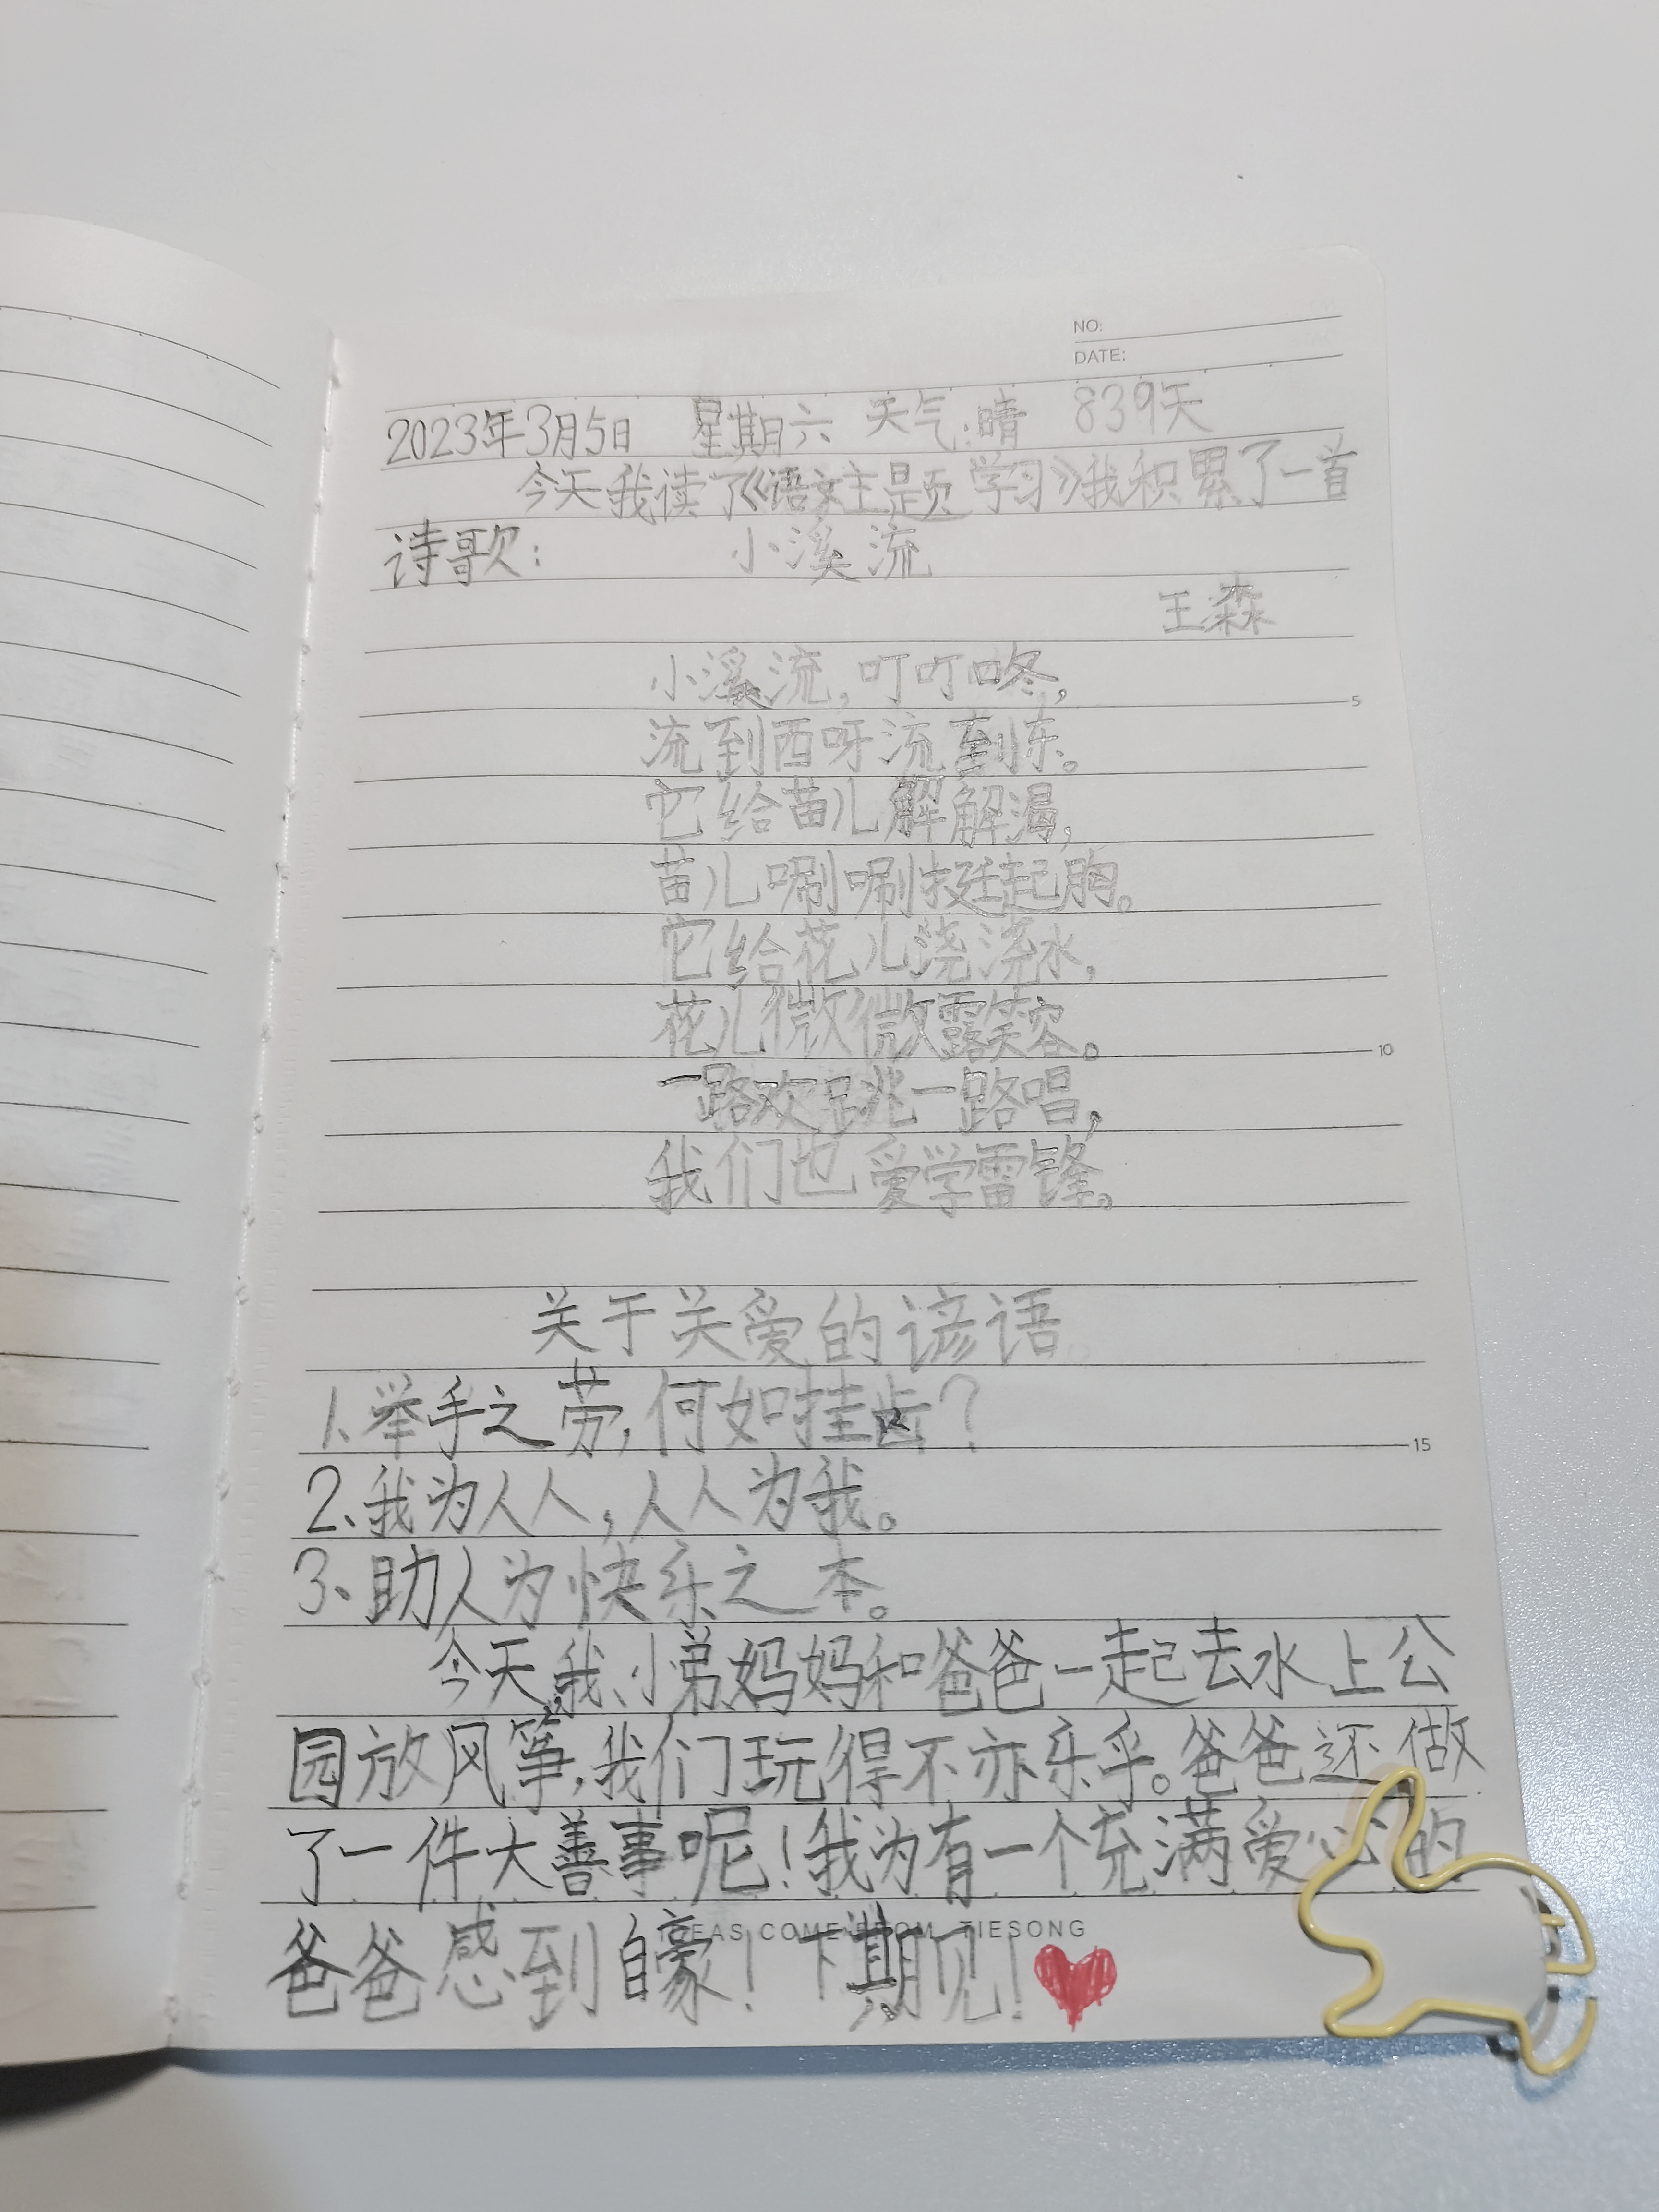 NO:
DATE:
2023年3月5日 星期六 天气:晴 839天
今天我读了《语文主题学习》我积累了一首
诗歌: 小溪流
王森
小溪流,叮叮咚,
5
流到西呀流到东。
它给苗儿解解渴,
苗儿唰唰挺起胸。
它给花儿浇浇水,
花儿微微露笑容。
10
一路欢跳一路唱,
我们也爱学雷锋。
关于关爱的谚语。
1、举手之劳,何如挂齿?
15
2、我为人人,人人为我。
3、助人为快乐之本。
今天,我、小弟、妈妈和爸爸一起去水上公
园放风筝,我们玩得不亦乐乎。爸爸还做
了一件大善事呢!我为有一个充满爱心的
EAS COME FROM TIESONG
爸爸感到自豪!下期见!